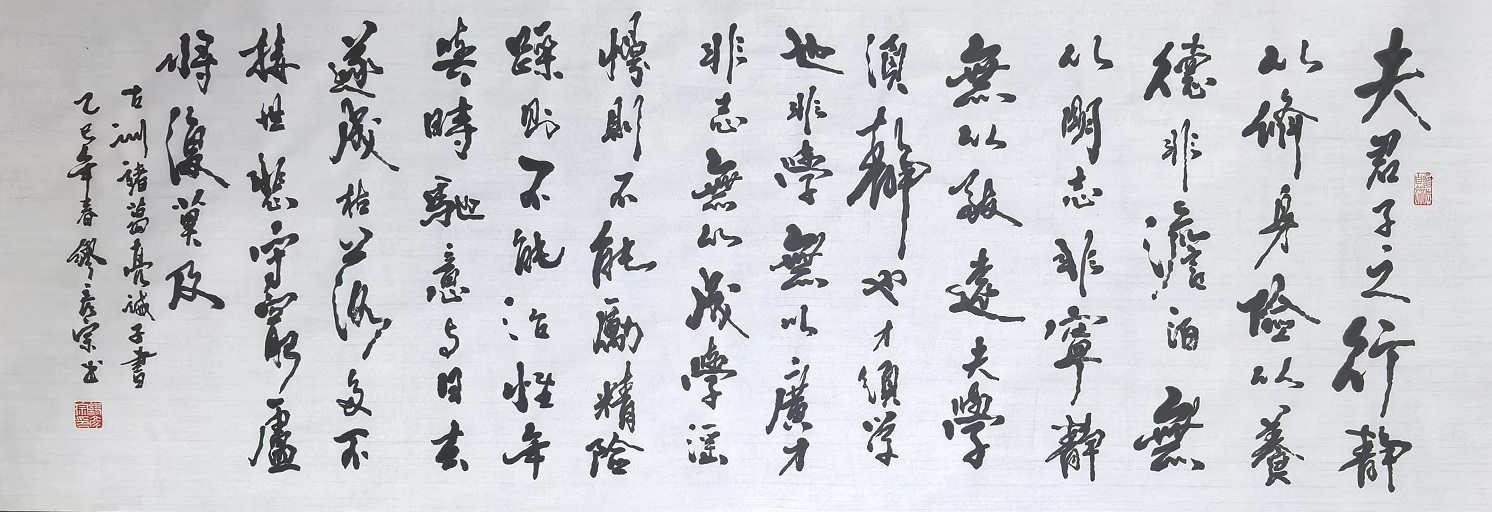 夫君子之行静
以脩身儉以養
德非澹泊無
以明志非寧靜
無以致遠夫學
須靜也才須学
也非學無以廣才
非志無以成學滛
慢則不能勵精險
躁則不能治性年
與時馳意与日去
遂成枯落多不
接世悲守窮廬
將復莫及
古訓諸葛亮誡子書
乙巳年春彥宗书